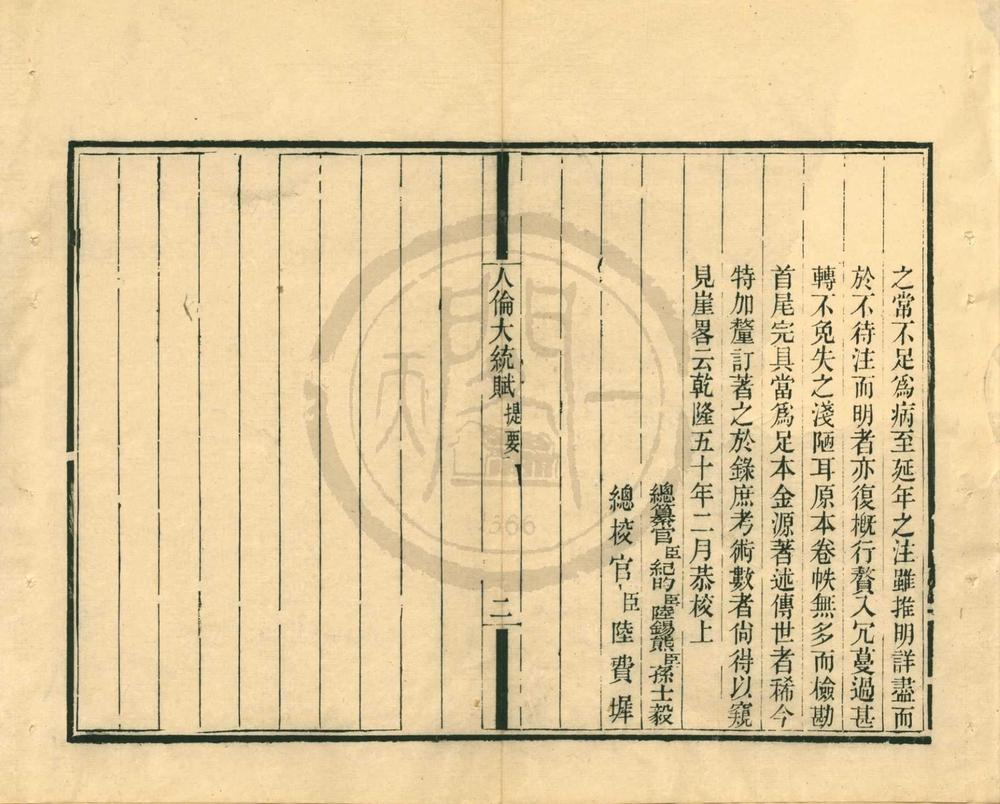 之常不足爲病至延年之注雖推明詳盡而
於不待注而明者亦復概行贅入冗蔓過甚
轉不免失之淺陋耳原本卷帙無多而檢勘
首尾完具當爲足本金源著述傳世者稀今
特加釐訂著之於錄庶考術數者尙得以窺
見崖畧云乾隆五十年二月恭校上
總纂官臣紀昀臣陸錫熊臣孫士毅
總校官臣陸費墀
人倫大統賦 提要 二